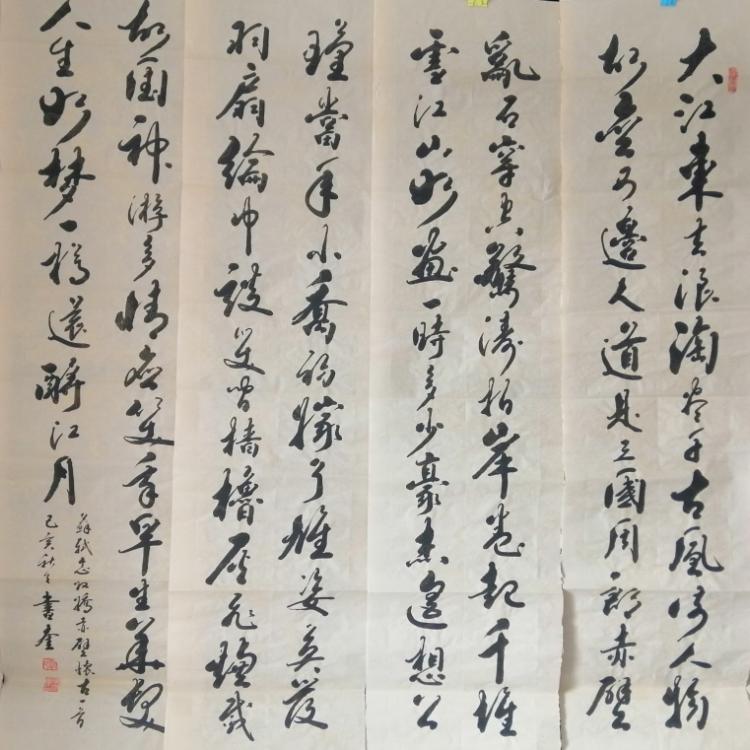 大江東去浪淘盡千古風流人物
故壘西邊人道是三國周郎赤壁
亂石穿空驚濤拍岸卷起千堆
雪江山如畫一時多少豪傑遙想公
瑾當年小喬初嫁了雄姿英發
羽扇綸巾談笑間檣櫓灰飛煙滅
故国神游多情應笑我早生華髮
人生如夢一樽還酹江月
蘇軾念奴嬌赤壁懷古一首
己亥秋書奎